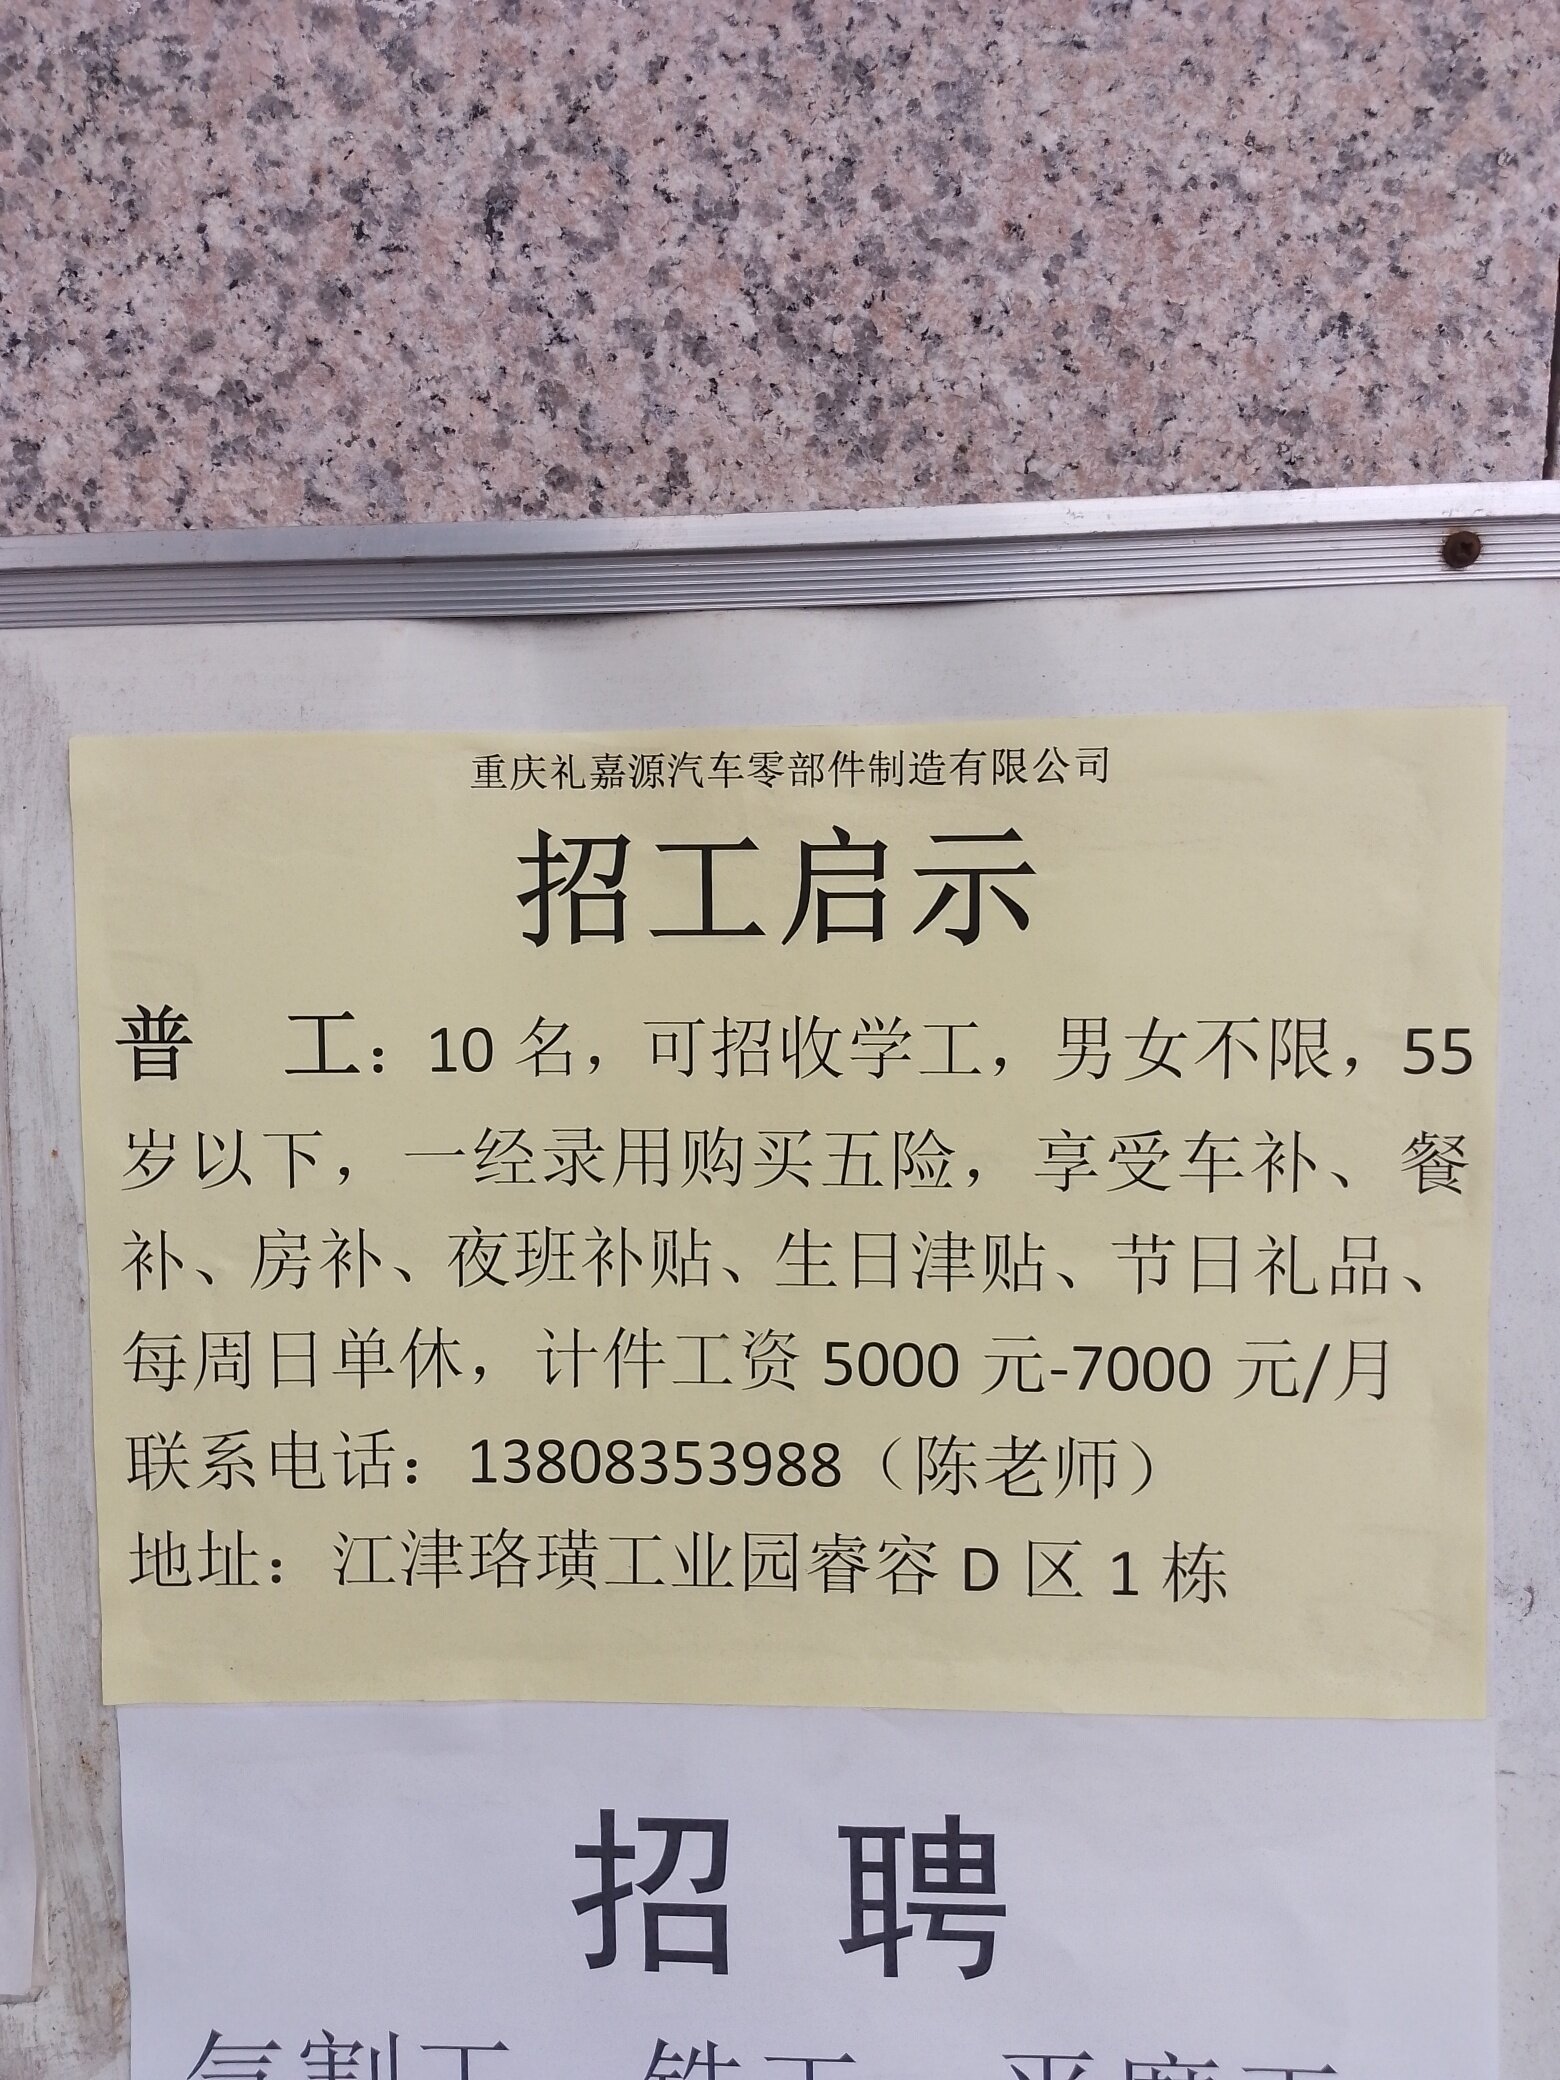 重庆礼嘉源汽车零部件制造有限公司
招工启示
普 工：10 名，可招收学工，男女不限，55
岁以下，一经录用购买五险，享受车补、餐
补、房补、夜班补贴、生日津贴、节日礼品、
每周日单休，计件工资 5000 元-7000 元/月
联系电话：13808353988（陈老师）
地址：江津珞璜工业园睿容 D 区 1 栋
招 聘
气割工 铣工 平磨工